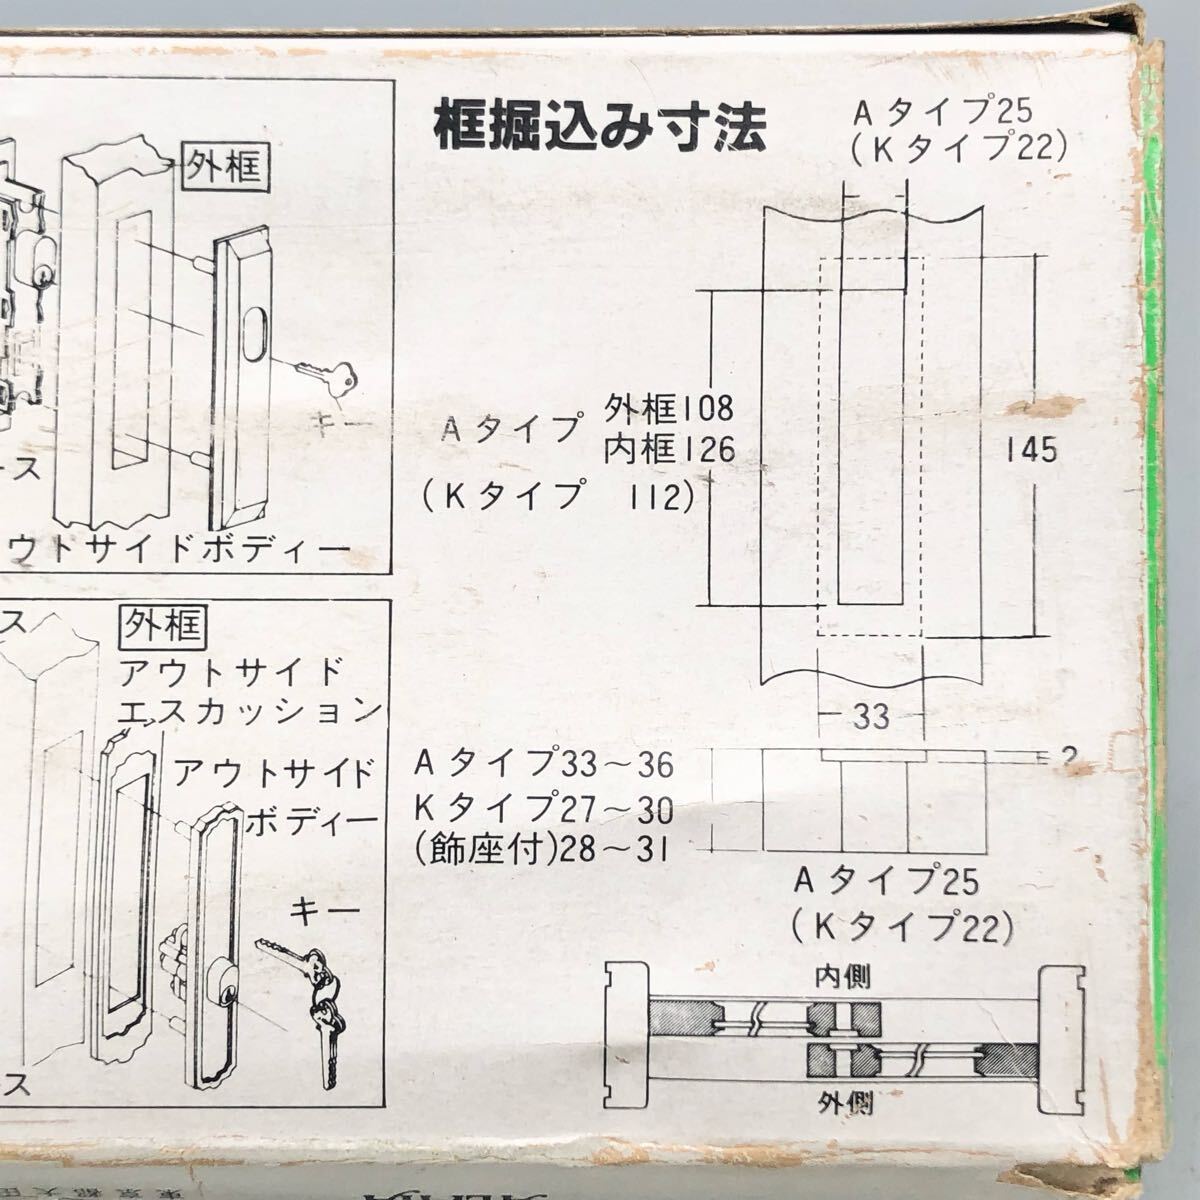 框掘込み寸法
Aタイプ25
(Kタイプ22)
外框
キー
ース
ウトサイドボディー
Aタイプ
外框108
内框126
(Kタイプ 112)
145
33
2
ス
外框
アウトサイド
エスカッション
アウトサイド
ボディー
キー
ース
Aタイプ33～36
Kタイプ27～30
(飾座付)28～31
Aタイプ25
(Kタイプ22)
内側
外側